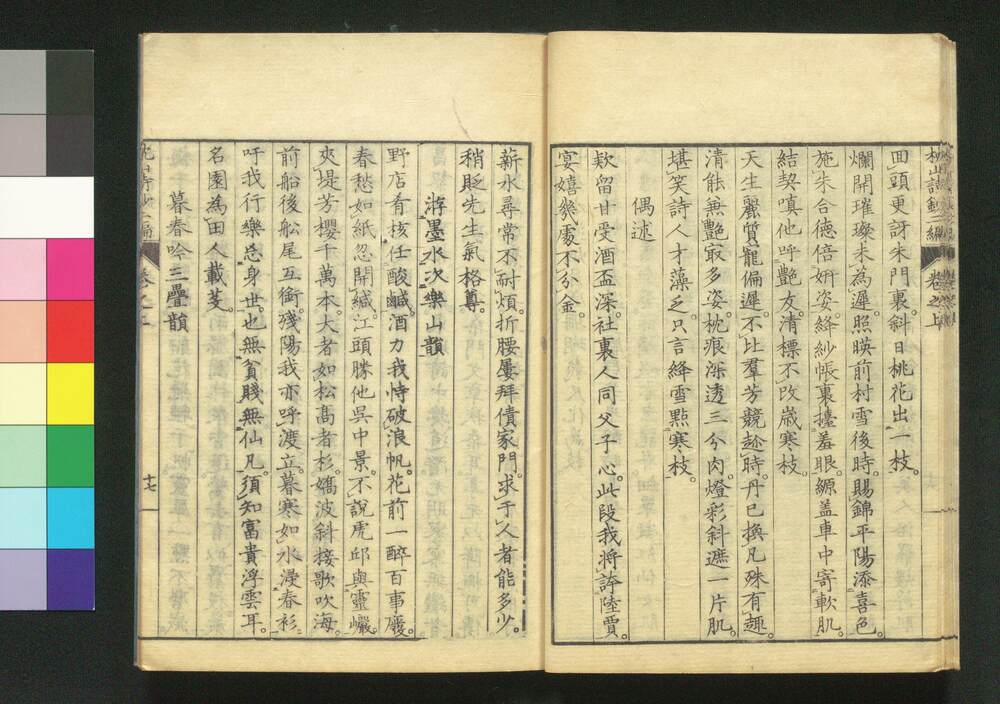 回頭更訝朱門裏。斜日桃花出一枝。
爛開璀璨未為遲。照暎前村雪後時。賜錦平陽添喜色。
施朱合德倍妍姿。絳紗帳裏擡羞眼。纐盖車中寄軟肌。
結契嗔他呼艷友。清標不改歳寒枝。
天生麗質寵偏遲。不比羣芳競趁時。丹已換凡殊有趣。
清能無艷最多姿。枕痕濼透三分肉。燈彩斜遮一片肌。
堪笑詩人才藻乏。只言絳雪點寒枝。
偶述
欵留甘受酒盃深。社裏人同父子心。此段我將誇陸賈。
宴嬉幾處不分金。
薪水尋常不耐煩。折腰屢拜債家門。求于人者能多少。
稍貶先生氣格尊。
游墨水次樂山韻
野店肴核任酸鹹。酒力我恃破浪帆。花前一醉百事廢。
春愁如紙忽開緘。江頭勝他呉中景。不說虎邱與靈巖。
夾堤芳櫻千萬本。大者如松髙者杉。嬌波斜接歌吹海。
前船後船尾互銜。殘陽我亦呼渡立。暮寒如水漫春衫。
吁我行樂忘身世。也無貧賤無仙凡。須知富貴浮雲耳。
名園為田人載芟。
暮春吟三疊韻
卷之上
十七